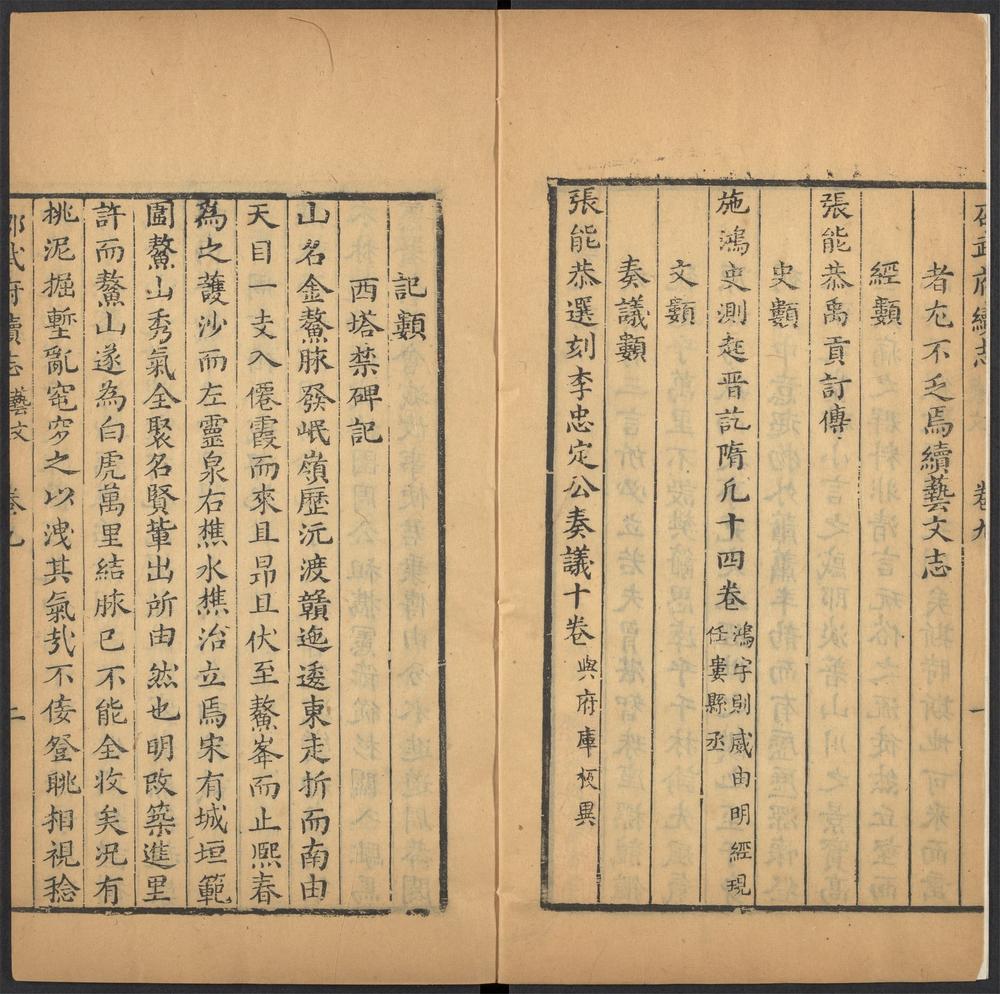 邵武府續志
卷九
一
者尢不乏焉續藝文志
經類
張能恭禹貢訂傳
史類
施鴻史測起晋訖隋凢十四卷
鴻字則威由明經現
任婁縣丞
文類
奏議類
張能恭選刻李忠定公奏議十卷
與府庫板異
記類
西塔禁碑記
山名金鰲脉發岷嶺歴沅渡贛迤逶東走折而南由
天目一支入僊霞而來且昂且伏至鰲峯而止熙春
為之護沙而左靈泉右樵水樵治立焉宋有城垣範
圍鰲山秀氣全聚名賢軰出所由然也明改築進里
許而鰲山遂為白虎萬里結脉已不能全收矣况有
挑泥掘塹亂窀穸之以洩其氣㢤不倭登眺相視稔
邵武府續志
藝文
卷九
二